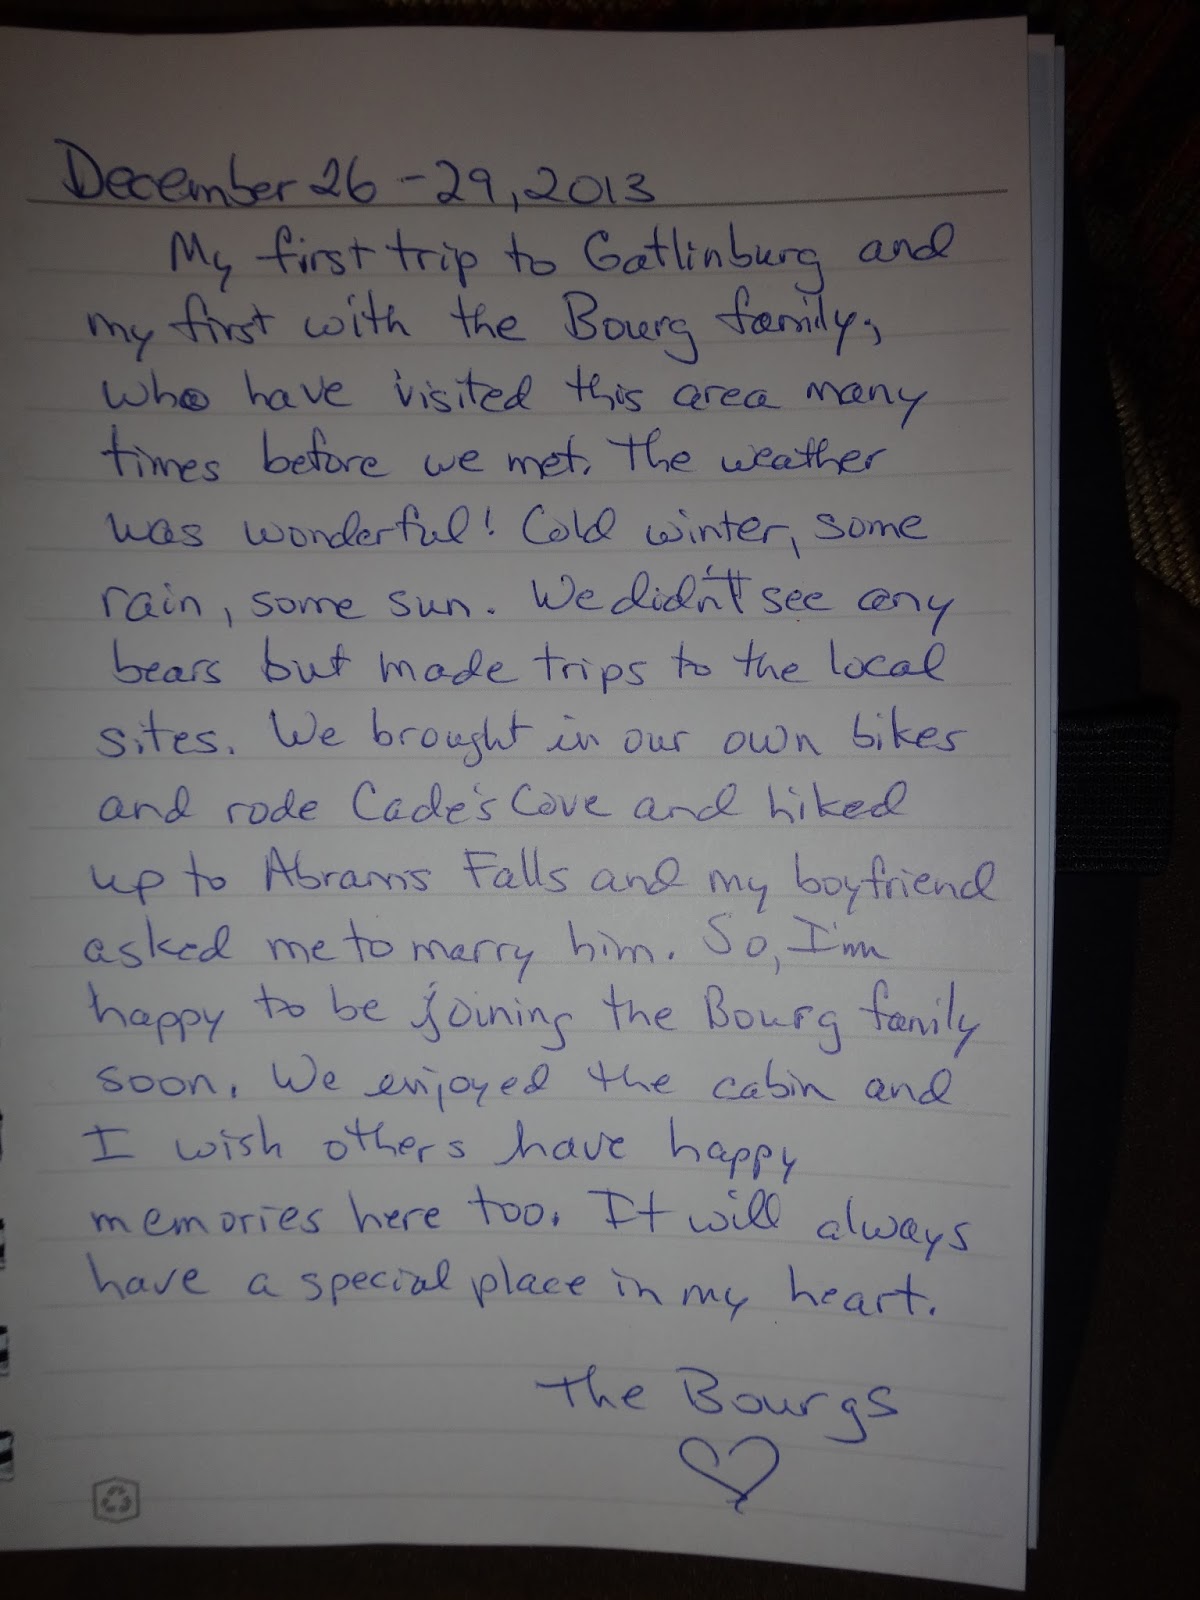 December 26 - 29, 2013
My first trip to Gatlinburg and
my first with the Bourg family,
who have visited this area many
times before we met. The weather
was wonderful! Cold winter, some
rain, some sun. We didn't see any
bears but made trips to the local
sites. We brought in our own bikes
and rode Cade's Cove and hiked
up to Abrams Falls and my boyfriend
asked me to marry him. So, I'm
happy to be joining the Bourg family
soon. We enjoyed the cabin and
I wish others have happy
memories here too. It will always
have a special place in my heart.
The Bourgs